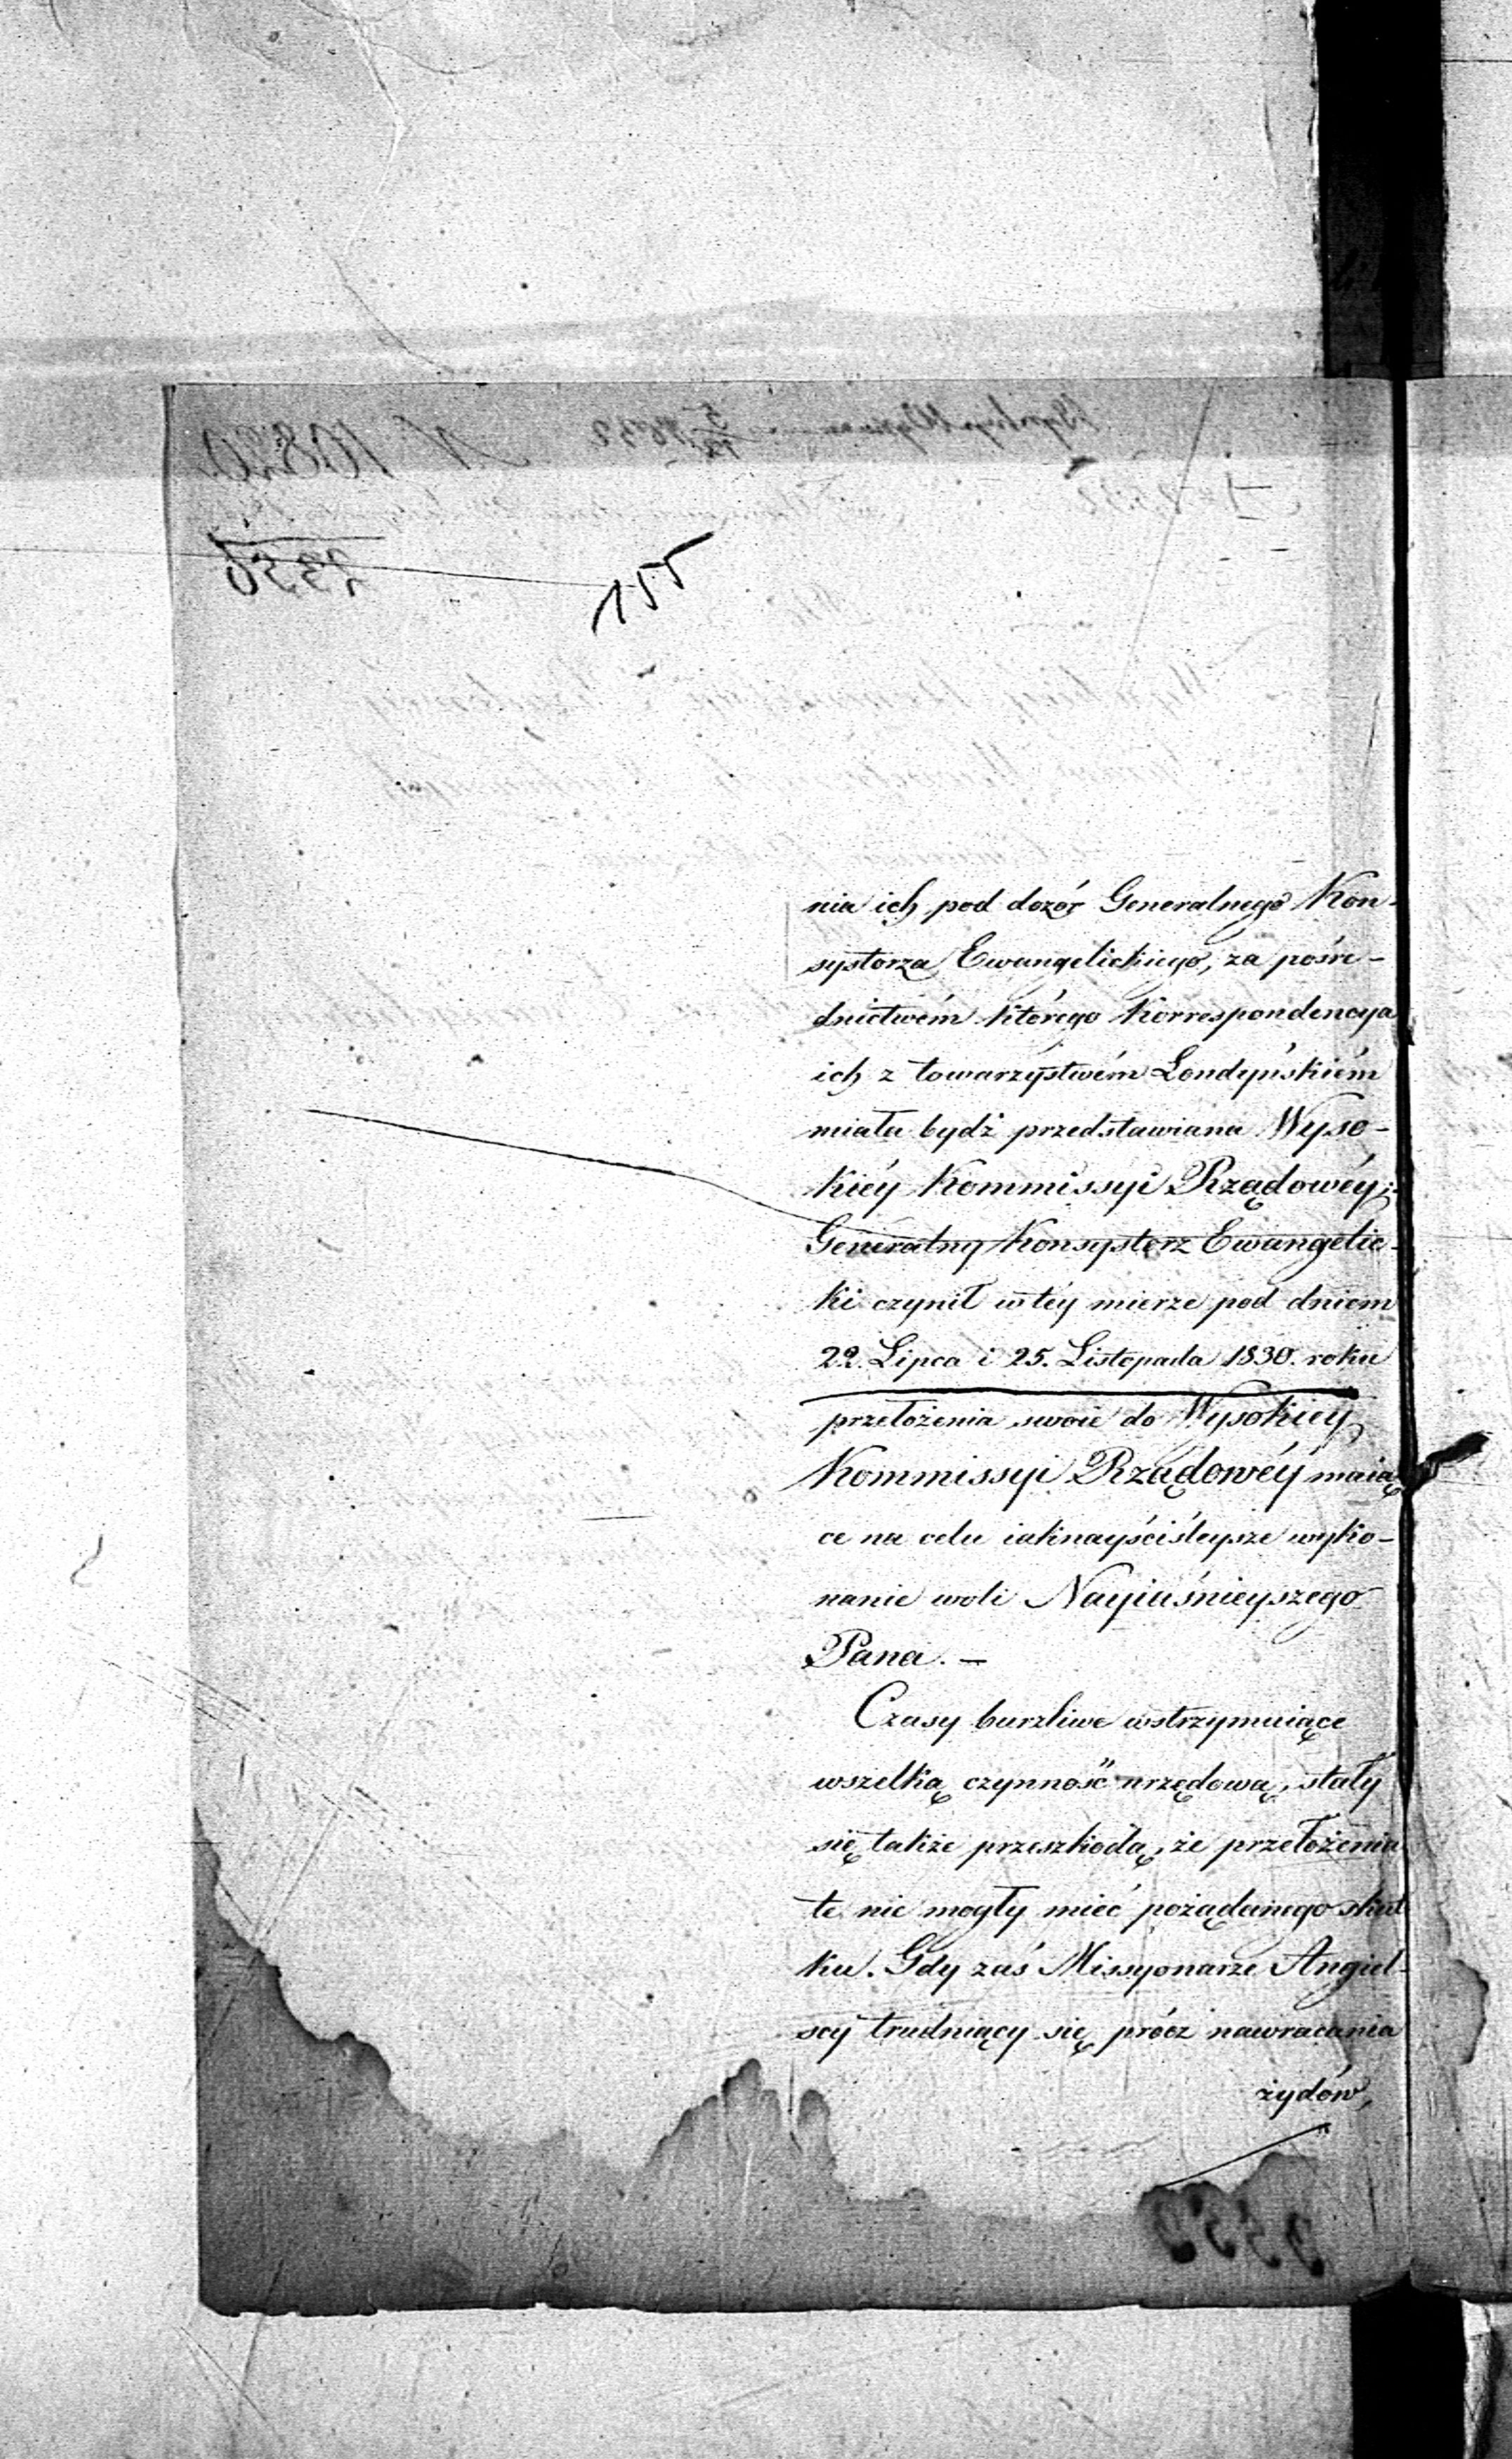 155
nia ich pod dozór Generalnego Kon-
systorza Ewangelickiego, za pośre-
dnictwém którégo korrespondencya
ich z towarzystwém Londyńskiém
miała bydź przedstawiana Wyso-
kiéy Kommissyi Rządowéy;
Generalny Konsystorz Ewangelic-
ki czynił w téy mierze pod dniem
22. Lipca i 25. Listopada 1830. roku
przełożenia swoie do Wysokiey
Kommissyi Rządowéy maią
ce na celu iaknayściśleysze wyko-
nanie woli Nayiaśnieyszego
Pana. —
Czasy burzliwe wstrzymuiące
wszelką czynność urzędową, stały
się także przeszkodą, że przełożenia
te nie mogły mieć pożądanego skut
ku. Gdy zaś Missyonarze Angiel-
scy trudniący się prócz nawracania
żydów,